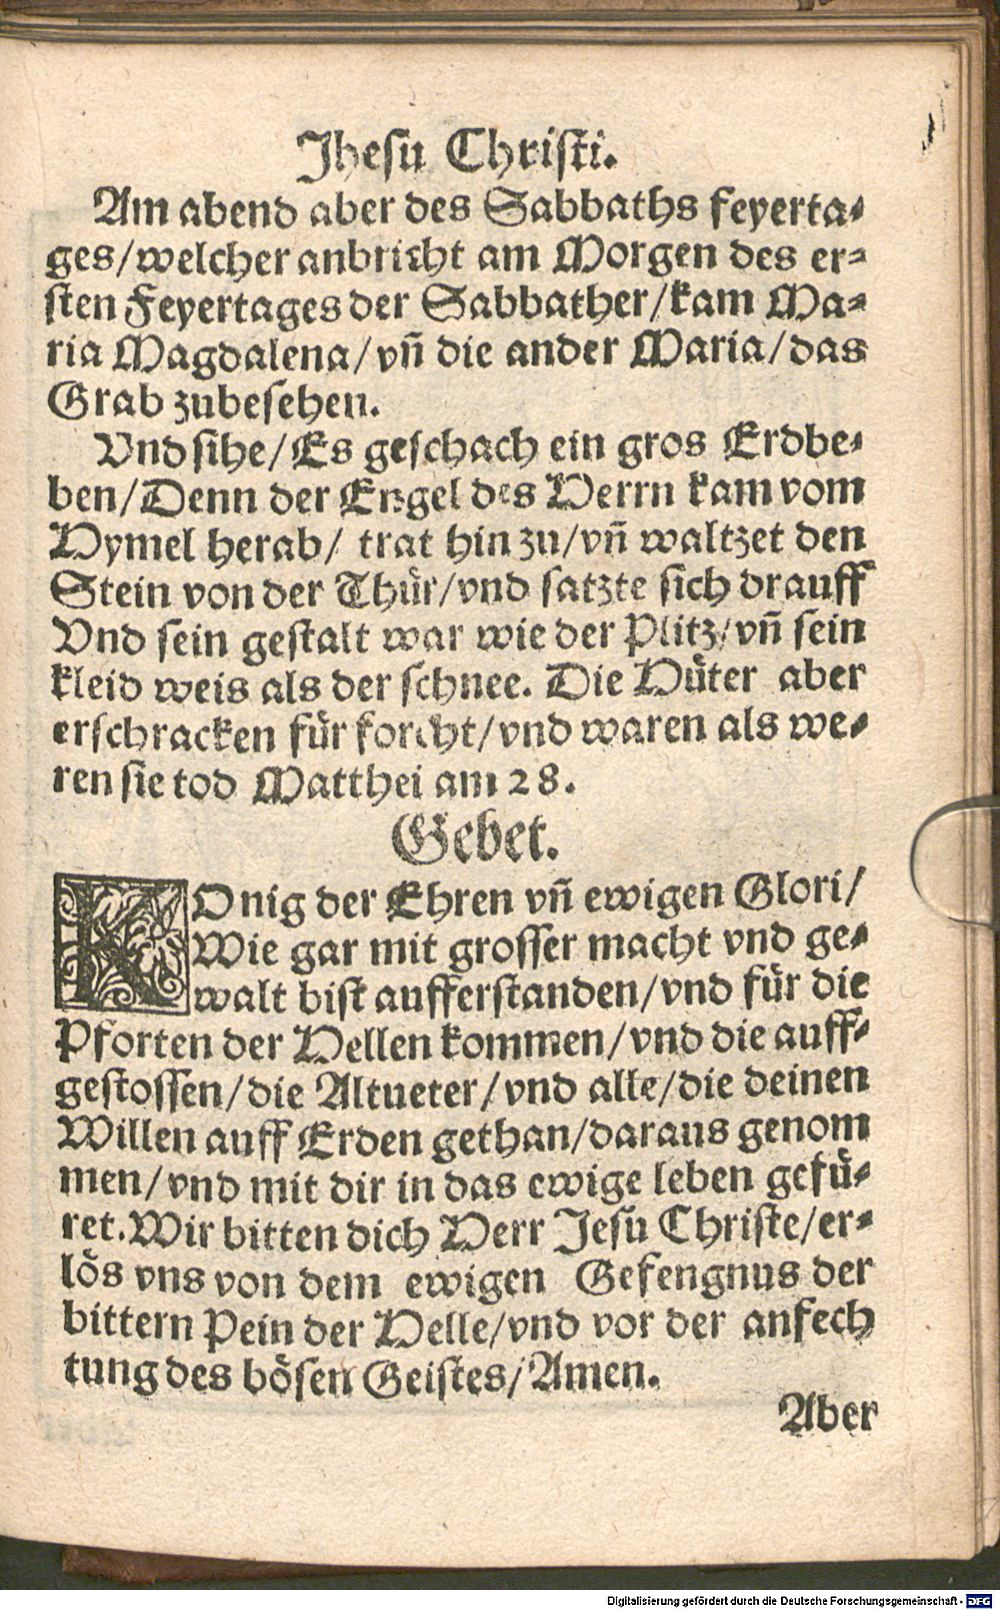 Jhesu Christi.
Am abend aber des Sabbaths feyerta-
ges/welcher anbricht am Morgen des er-
sten Feyertages der Sabbather/kam Ma-
ria Magdalena/vñ die ander Maria/das
Grab zubesehen.
Vnd sihe/Es geschach ein gros Erdbe-
ben/Denn der Engel des Herrn kam vom
Hymel herab/ trat hin zu/vñ waltzet den
Stein von der Thür/vnd satzte sich drauff
Vnd sein gestalt war wie der Plitz/vñ sein
kleid weis als der schnee. Die Hüter aber
erschracken für forcht/vnd waren als we-
ren sie tod Matthei am 28.
Gebet.
KOnig der Ehren vñ ewigen Glori/
Wie gar mit grosser macht vnd ge-
walt bist aufferstanden/vnd für die
Pforten der Hellen kommen/vnd die auff-
gestossen/die Altueter/vnd alle/die deinen
Willen auff Erden gethan/daraus genom
men/vnd mit dir in das ewige leben gefü-
ret. Wir bitten dich Herr Jesu Christe/er-
lös vns von dem ewigen Gefengnus der
bittern Pein der Helle/vnd vor der anfech
tung des bösen Geistes/Amen.
Aber
Digitalisierung gefördert durch die Deutsche Forschungsgemeinschaft - DFG